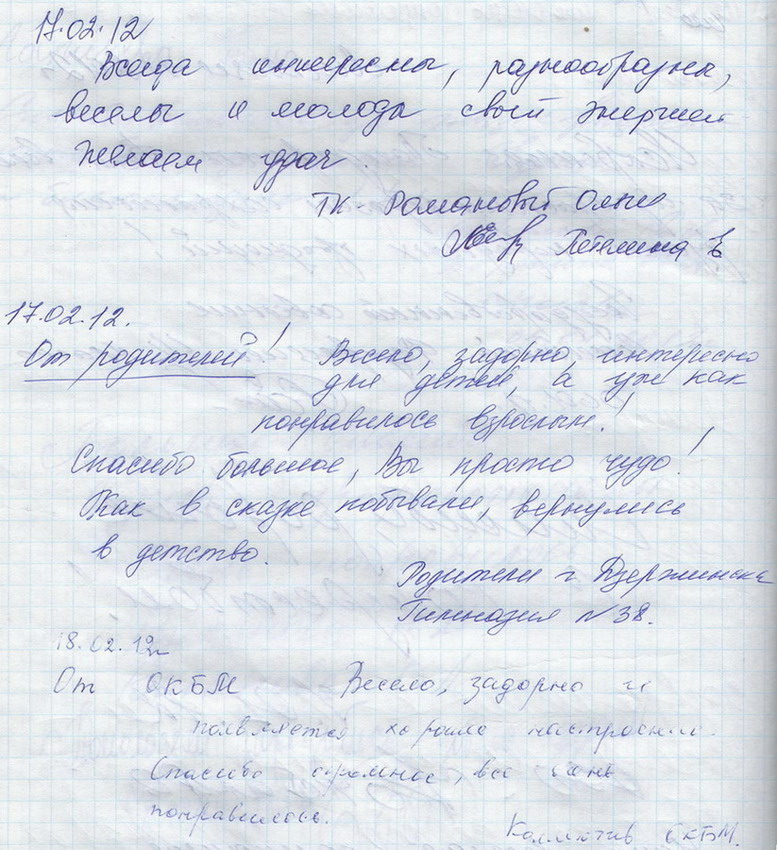 17.02.12
Всегда интересны, разнообразны,
веселы и молоды своей энергией
желаем удач.
ТК- Романовый
17.02.12.
От родителей! Весело, задорно, интересно
для детей, а уж как
понравилось взрослым!
Спасибо большое, Вы просто чудо!
Как в сказке побывали, вернулись
в детство.
Родители г. Дзержинска
Гимназия №38.
18.02.12
От ОКБМ Весело, задорно и
появляется хорошее настроение.
Спасибо огромное, все очень
понравилось.
Коллектив ОКБМ.